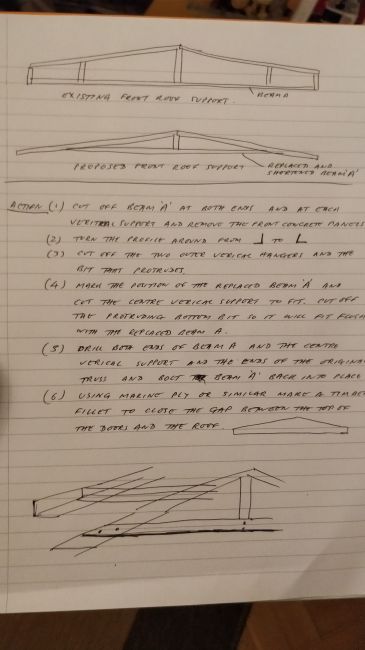 EXISTING FRONT ROOF SUPPORT.
BEAM A
PROPOSED FRONT ROOF SUPPORT
REPLACED AND
SHORTENED BEAM 'A'
ACTION (1) CUT OFF BEAM 'A' AT BOTH ENDS AND AT EACH
VERITRAL SUPPORT AND REMOVE THE FRONT CONCRETE PANELS
(2) TURN THE PROFILE AROUND FROM ⅃ TO L
(3) CUT OFF THE TWO OUTER VERICAL HANGERS AND THE
BIT THAT PROTRUDES.
(4) MARK THE POSITION OF THE REPLACED BEAM 'A' AND
CUT THE CENTRE VERICAL SUPPORT TO FIT. CUT OFF
THE PROTRUDING BOTTOM BIT SO IT WILL FIT FLUSH
WITH THE REPLACED BEAM A.
(5) DRILL BOTH ENDS OF BEAM A AND THE CENTRE
VERICAL SUPPORT AND THE ENDS OF THE ORIGINA
TRUSS AND BOLT BEAM 'A' BACK INTO PLACE
(6) USING MARINE PLY OR SIMILAR MAKE A TIMBE
FILLET TO CLOSE THE GAP BETWEEN THE TOP OF
THE DOORS AND THE ROOF